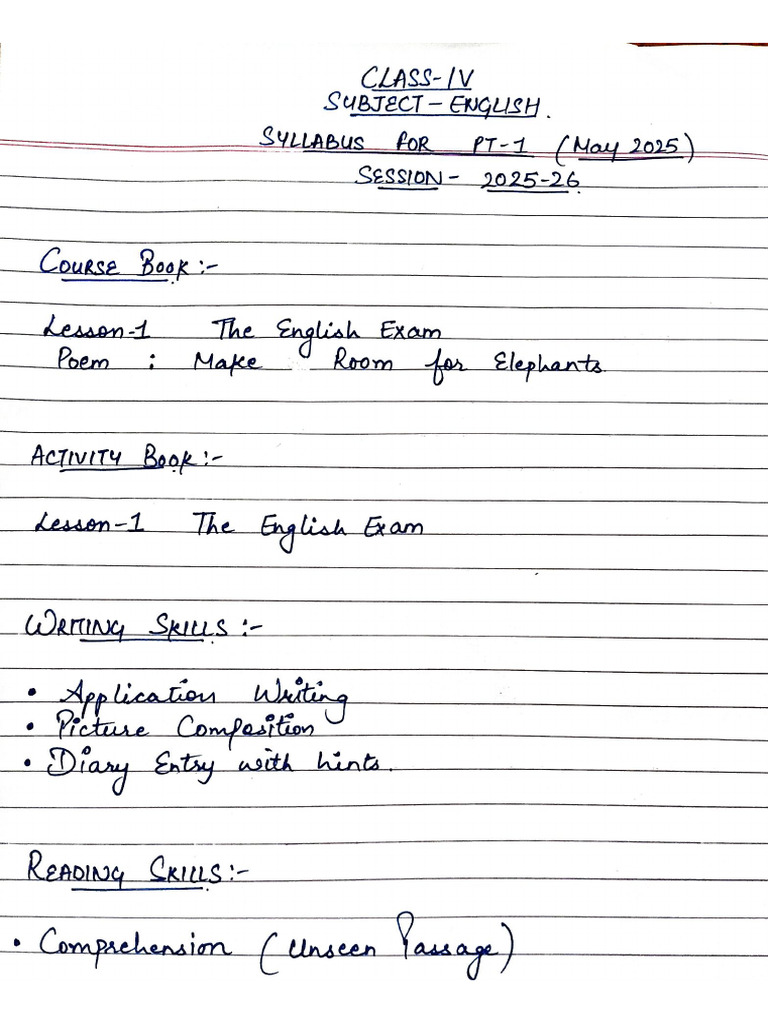 CLASS-IV
SUBJECT-ENGLISH.
SYLLABUS FOR PT-1 (May 2025)
SESSION- 2025-26
COURSE BOOK:-
Lesson-1 The English Exam
Poem : Make Room for Elephants
ACTIVITY BOOK:-
Lesson-1 The English Exam
WRITING SKILLS:-
• Application Writing
• Picture Composition
• Diary Entry with hints.
READING SKILLS:-
• Comprehension (Unseen Passage)